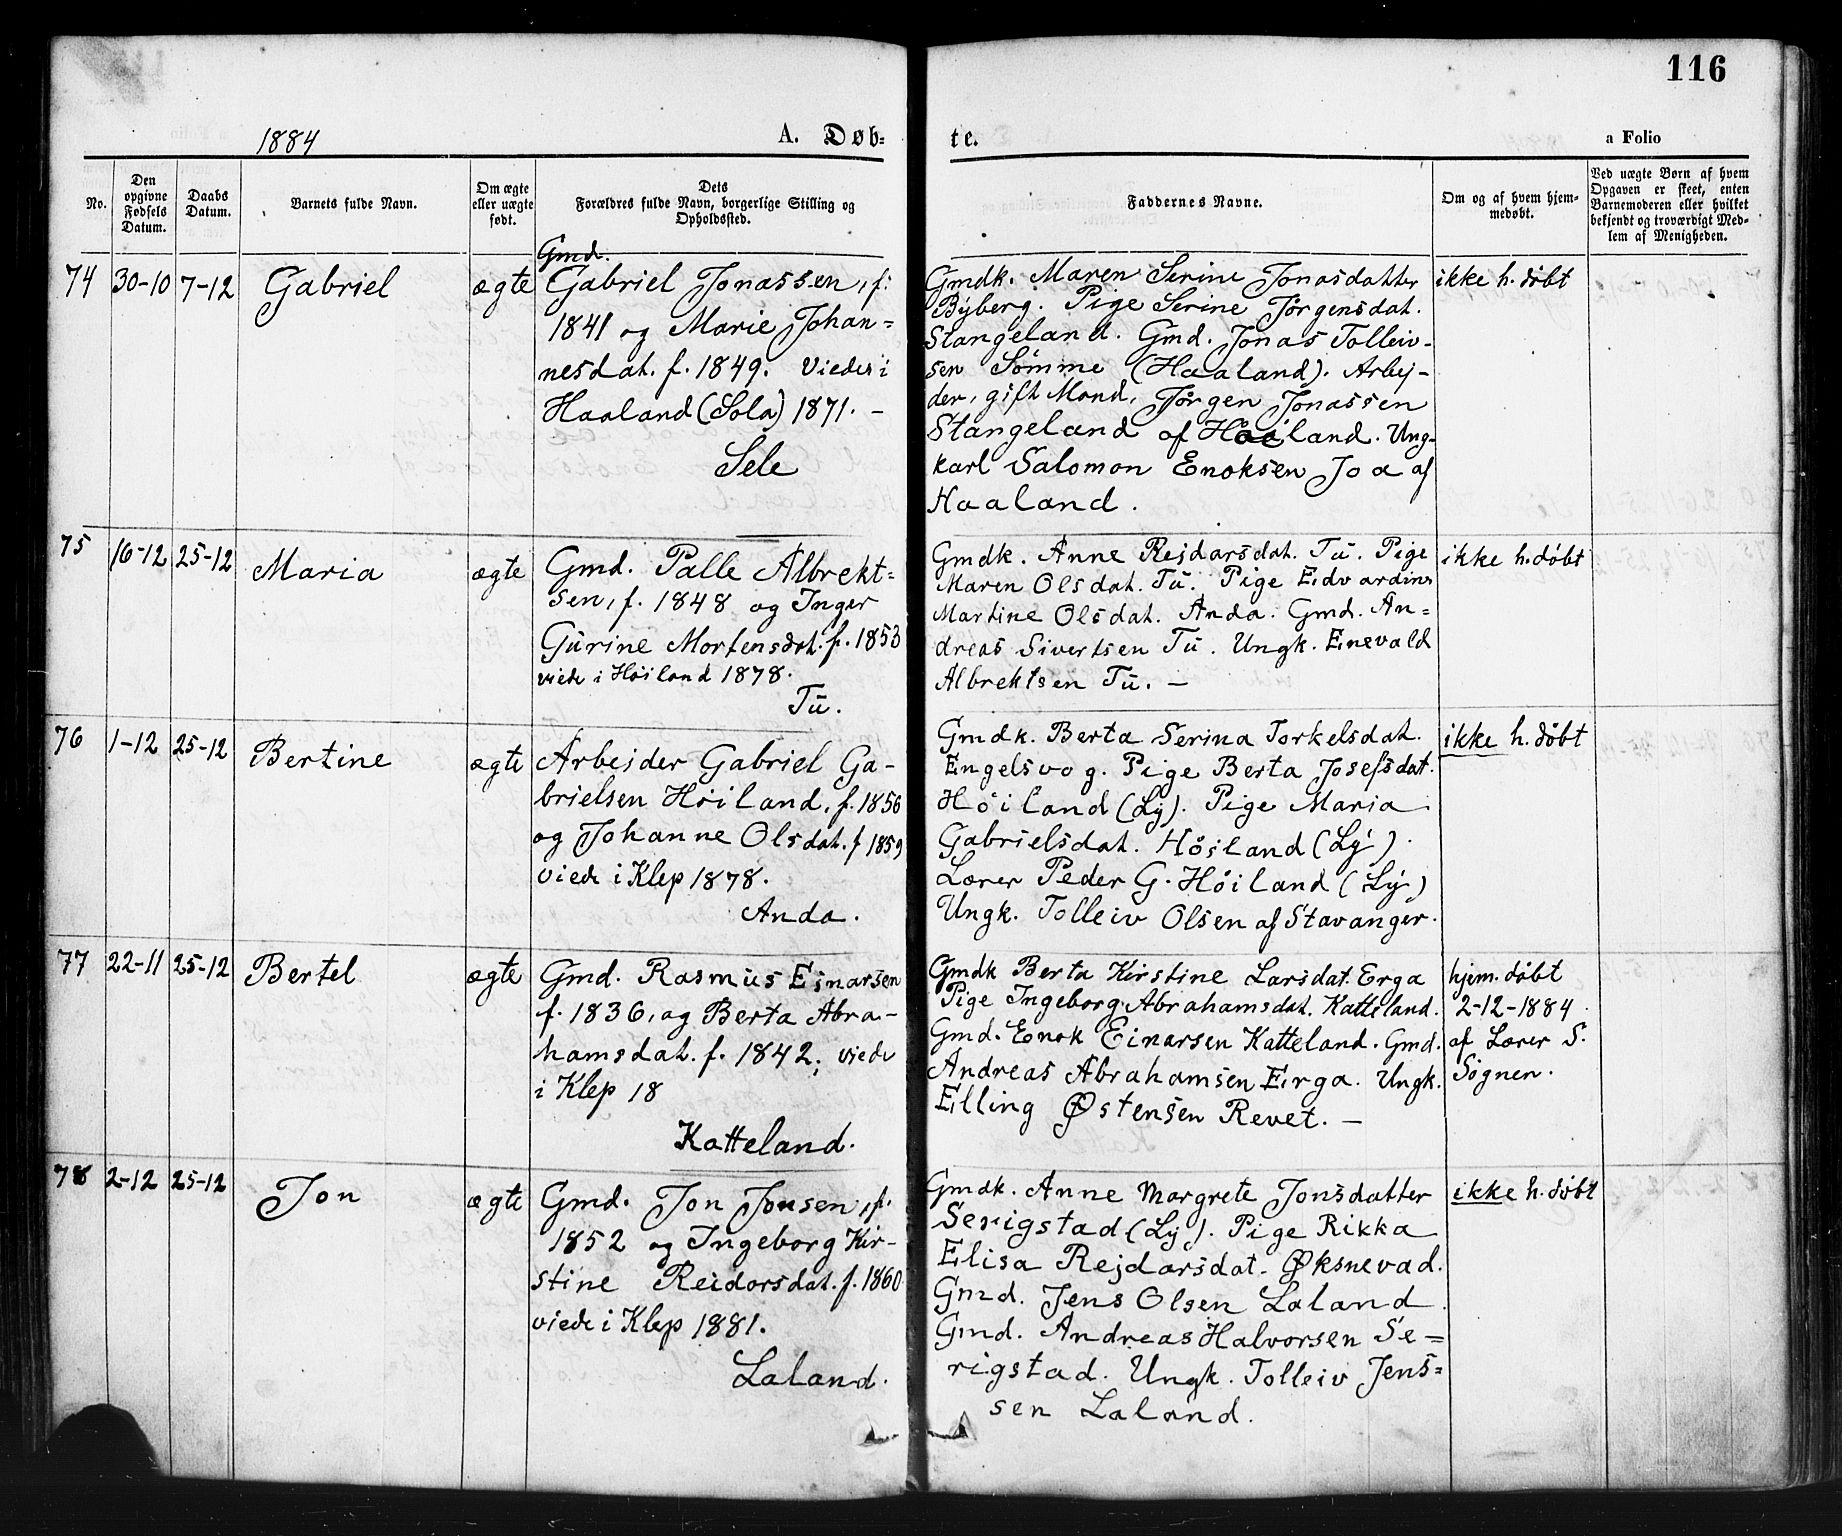 116
1884
A. Døb-
te.
a Folio
No.
Den
opgivne
Fødsels
Datum.
Daabs
Datum.
Barnets fulde Navn.
Om ægte
eller uægte
født.
Dets
Forældres fulde Navn, borgerlige Stilling og
Opholdssted.
Faddernes Navne.
Om og af hvem hjem-
medøbt.
Ved uægte Børn af hvem
Opgaven er skeet, enten
Barnemoderen eller hvilket
bekjendt og troværdigt Med-
lem af Menigheden.
74 30-10 7-12 Gabriel ægte
Gmd.
Gabriel Jonassen, f.
1841 og Marie Johan=
nesdat. f. 1849. Viede i
Haaland (Sola) 1871. -
Sele
Gmdk. Maren Serine Jonasdatter
Byberg. Pige Serine Jørgensdat.
Stangeland. Gmd. Jonas Tolleiv-
sen Sømme (Haaland). Arbej-
der, gift Mand, Jørgen Jonassen
Stangeland af Haaland. Ung-
karl Salomon Enoksen Joa af
Haaland.
ikke h. døbt
75 16-12 25-12 Maria ægte
Gmd. Palle Albrekt=
sen, f. 1848 og Inger
Gurine Mortensdat. f. 1853
viede i Høiland 1878.
Tu.
Gmdk. Anne Rejdarsdat. Tu. Pige
Maren Olsdat. Tu. Pige Edvardine
Martine Olsdat. Anda. Gmd. An=
dreas Sivertsen Tu. Ungk. Enevald
Albrektsen Tu. -
ikke h. døbt
76 1-12 25-12 Bertine ægte
Arbejder Gabriel Ga-
brielsen Høiland, f. 1856
og Johanne Olsdat. f 1859
viede i Klep 1878.
Anda.
Gmdk. Berta Serina Torkelsdat.
Engelsvog. Pige Berta Josefsdat.
Høiland (Ly). Pige Maria
Gabrielsdat. Høiland (Ly).
Lærer Peder G. Høiland (Ly)
Ungk. Tolleiv Olsen af Stavanger.
ikke h. døbt
77 22-11 25-12 Bertel ægte
Gmd. Rasmus Einarsen
f. 1836, og Berta Abra-
hamsdat. f. 1842, viede
i Klep 18
Katteland.
Gmdk Berta Kirstine Larsdat. Erga
Pige Ingeborg Abrahamsdat. Katteland.
Gmd. Enok Einarsen Katteland. Gmd.
Andreas Abrahamsen Erga. Ungk.
Elling Østensen Revet. -
hjem. døbt
2-12-1884
af Lærer S.
Sognen.
78 2-12 25-12 Jon ægte
Gmd. Jon Jonsen, f.
1852 og Ingeborg Kir-
stine Reidarsdat. f. 1860
viede i Klep 1881.
Laland.
Gmdk. Anne Margrete Jonsdatter
Serigstad (Ly). Pige Rikka
Elisa Rejdarsdat. Øksnevad.
Gmd. Jens Olsen Laland
Gmd. Andreas Halvorsen Se=
rigstad. Ungk. Tolleiv Jens=
sen Laland.
ikke h. døbt